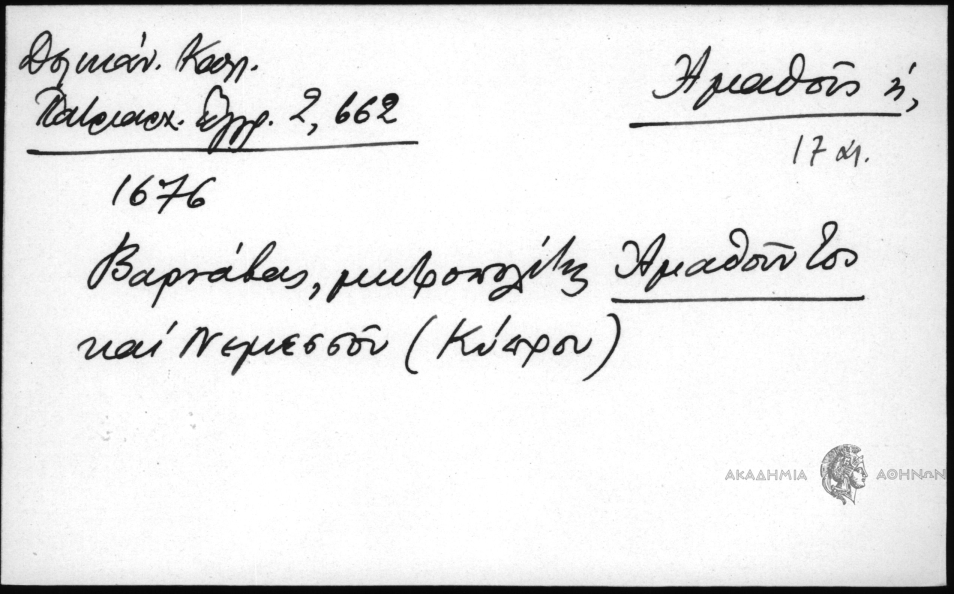 Δελικάν. Καλλ.
Πατριαρχ. Ἔγγρ. 2, 662
Ἀμαθοῦς ἡ,
17 αι.
1676
Βαρνάβας, μητροπολίτης Ἀμαθοῦντος
καί Νεμεσσοῦ (Κύπρου)
ΑΚΑΔΗΜΙΑ ΑΘΗΝΩΝ